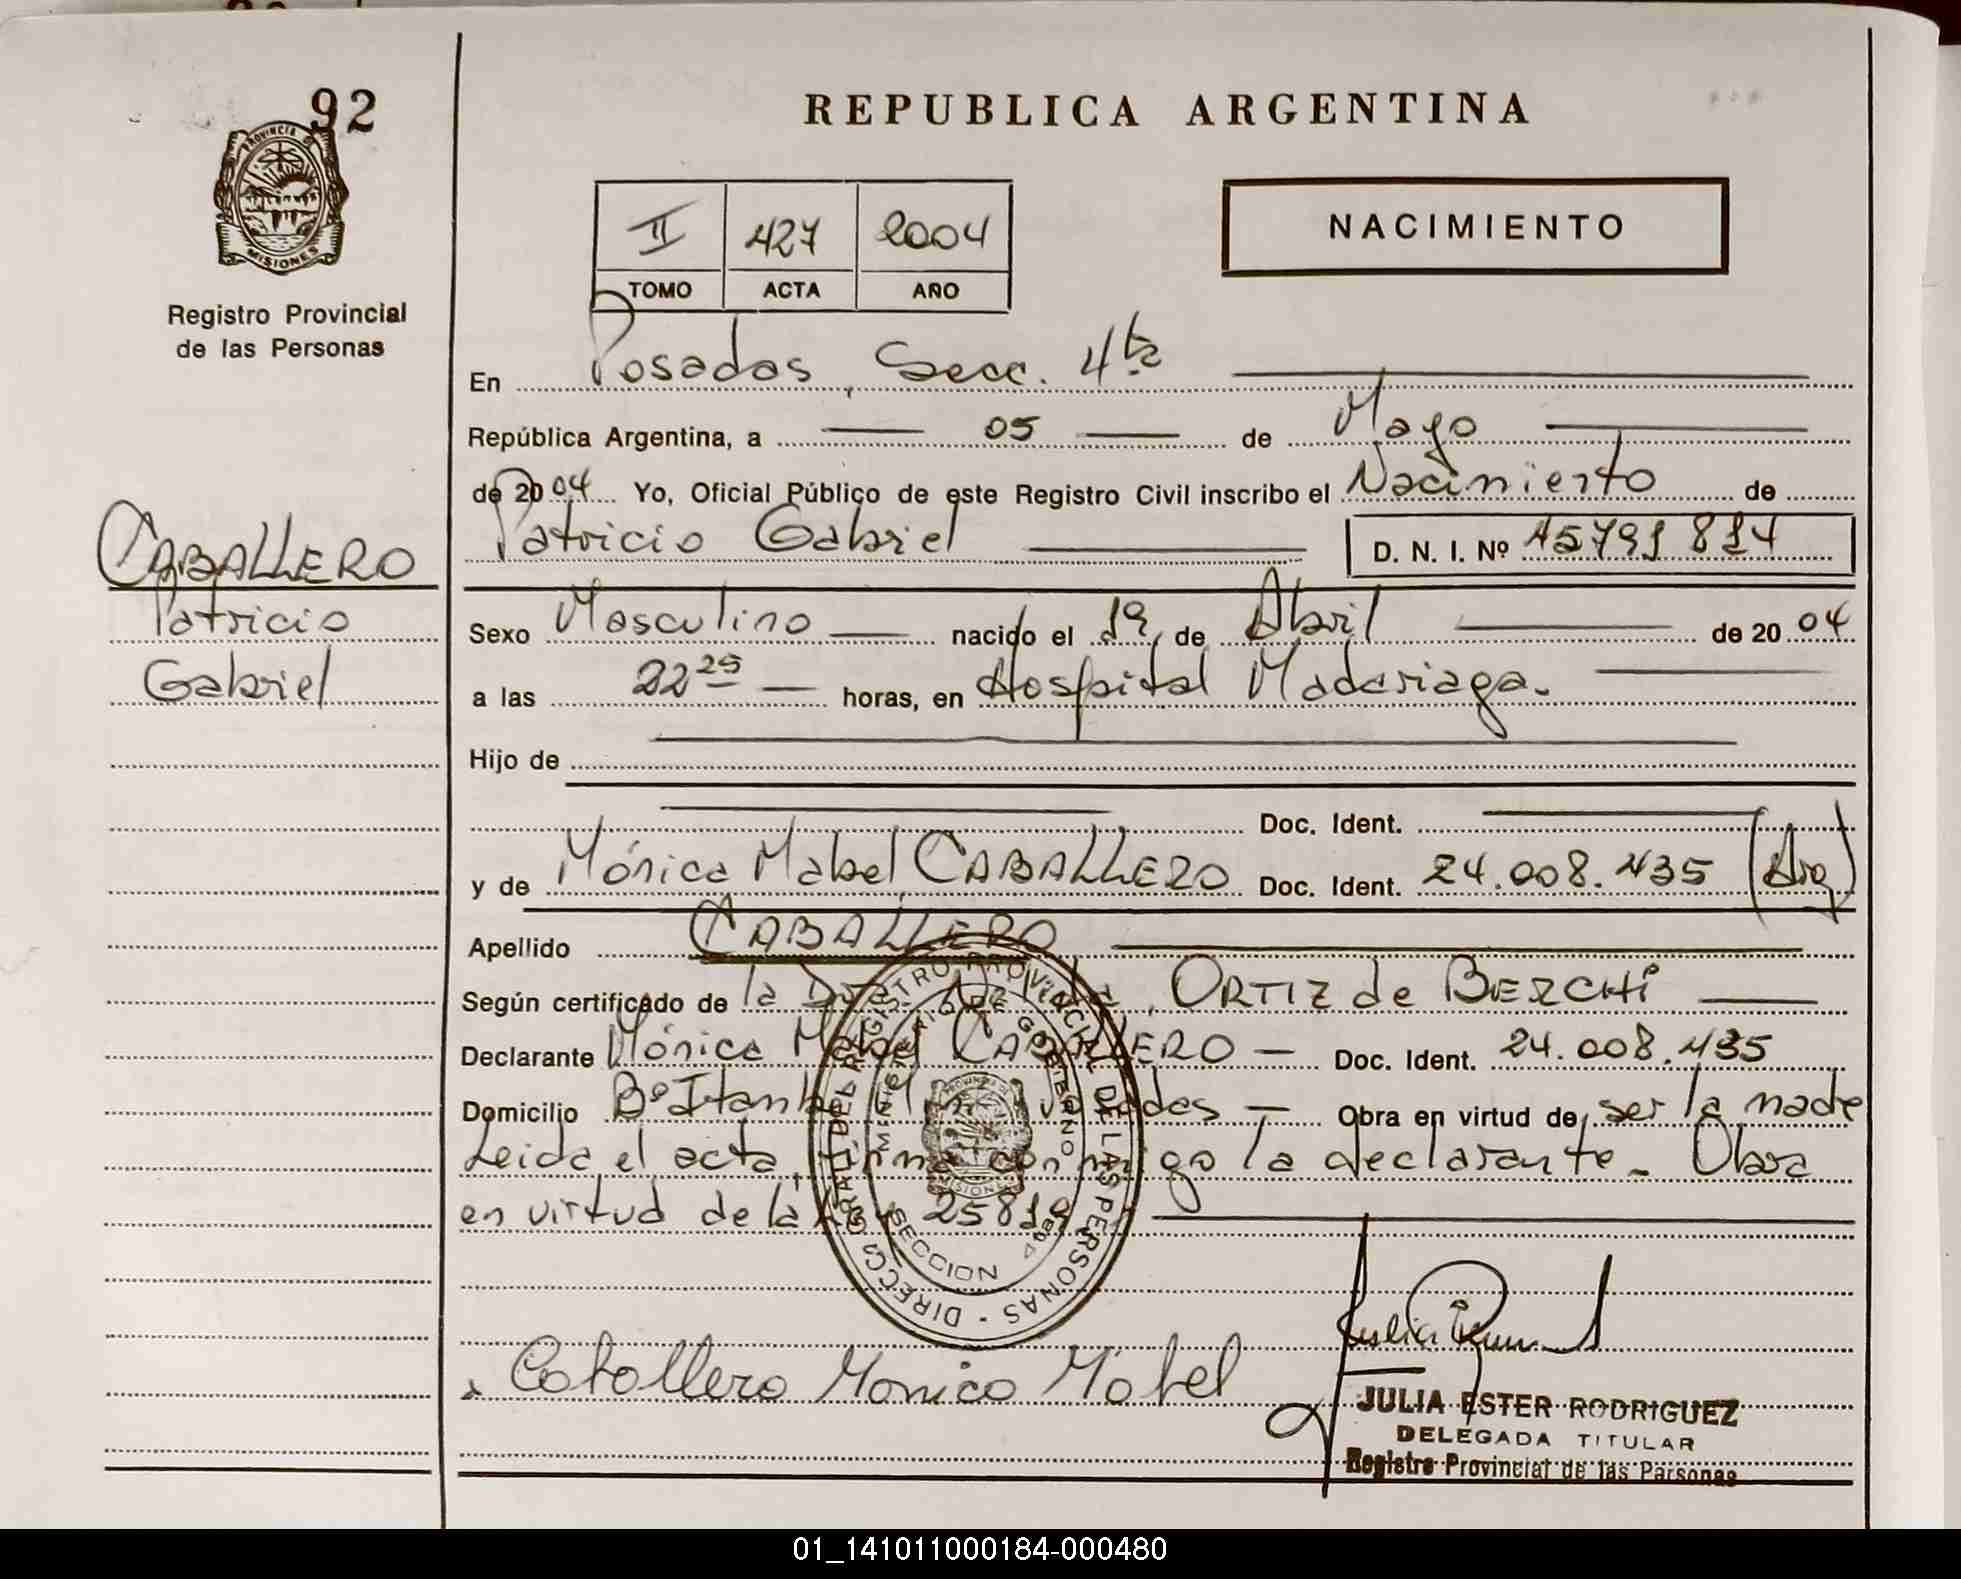 92
PROVINCIA DE
MISIONES
Registro Provincial
de las Personas
CABALLERO
Patricio
Gabriel
REPUBLICA ARGENTINA
II 427 2004
TOMO ACTA AÑO
NACIMIENTO
En Posadas, Secc. 4ta
República Argentina, a 05 de Mayo
de 2004 Yo, Oficial Público de este Registro Civil inscribo el Nacimiento de
Patricio Gabriel D. N. I. Nº 45791 814
Sexo Masculino nacido el 19, de Abril de 20 04
a las 22 25 horas, en Hospital Madariaga.
Hijo de
Doc. Ident.
y de Mónica Mabel CABALLERO Doc. Ident. 24.008.435 (Arg)
Apellido CABALLERO
Según certificado de la ORTIZ de BERCHI
Declarante Mónica Mabel CABALLERO Doc. Ident. 24.008.435
Domicilio Bº Obra en virtud de ser la madre
Leida el acta, firma conmigo la declarante. Obra
en virtud de la 25819
DIRECC. GRAL. DEL REGISTRO PROVINCIAL DE LAS PERSONAS
MINISTERIO DE GOBIERNO
PROVINCIA DE
MISIONES
SECCION
Caballero Monica Mabel
JULIA ESTER RODRIGUEZ
DELEGADA TITULAR
Registro Provincial de las Personas
01_141011000184-000480